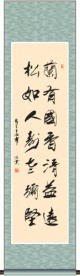 蘭有國香清益遠
松如人壽老彌堅